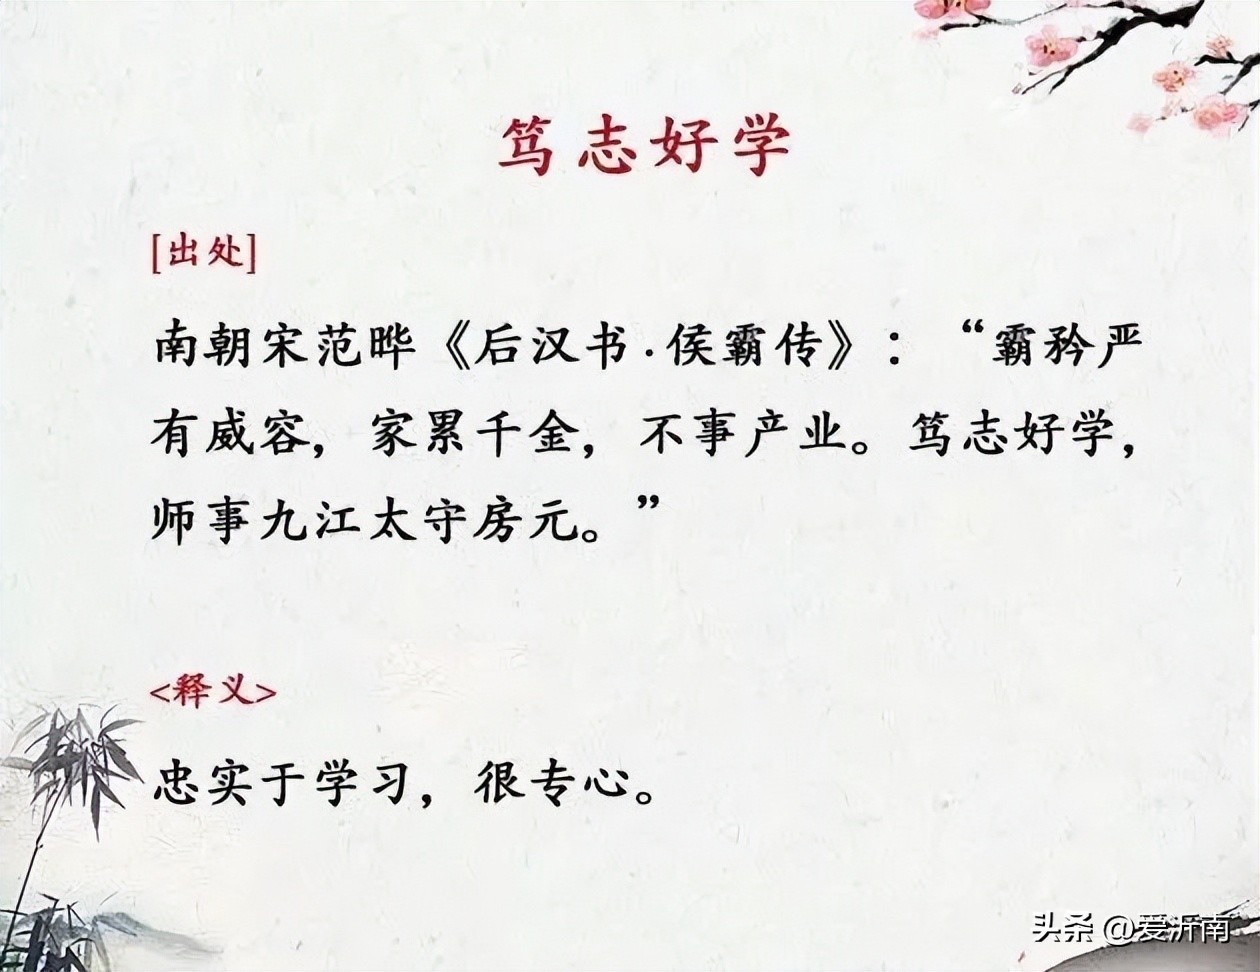 笃志好学
[出处]
南朝宋范晔《后汉书·侯霸传》：“霸矜严
有威容，家累千金，不事产业。笃志好学，
师事九江太守房元。”
<释义>
忠实于学习，很专心。
头条 @爱沂南